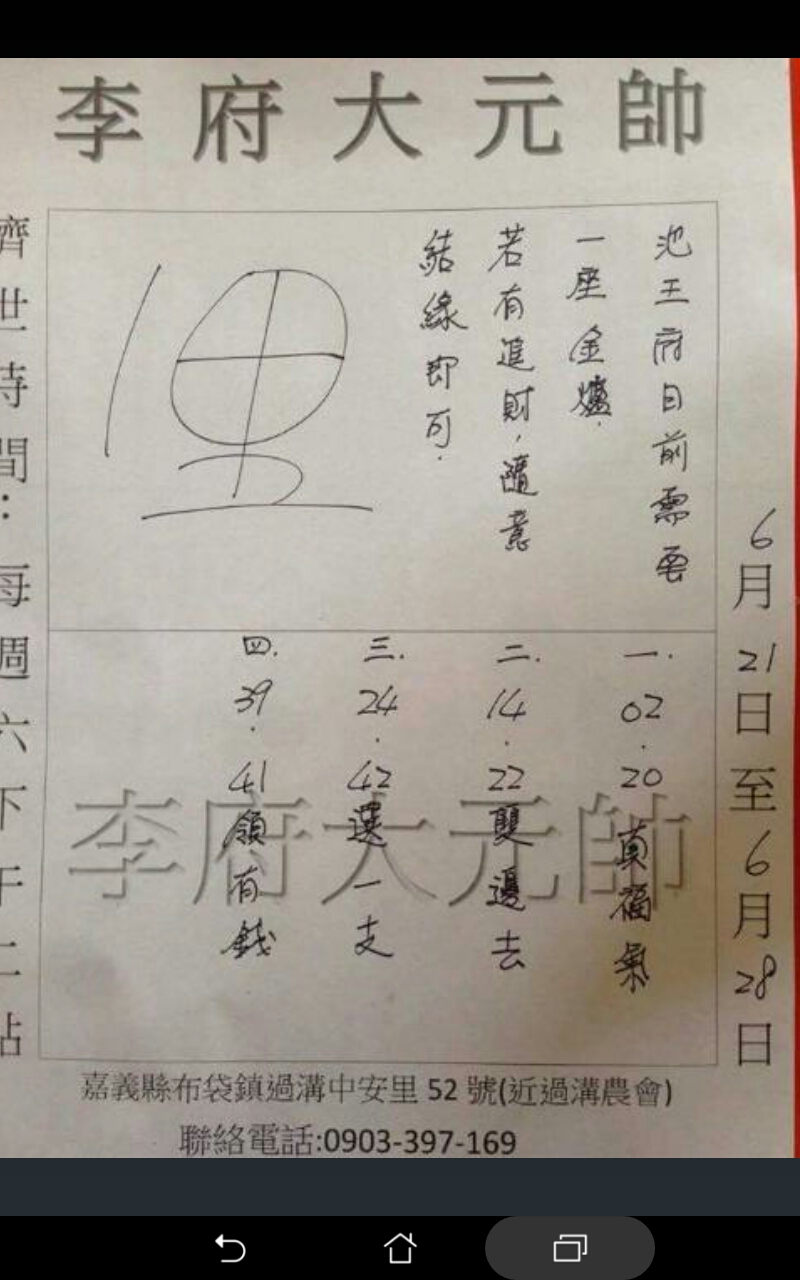 李府大元帥
池王府目前需要
一座金爐.
若有進財,隨意
結緣即可.
6月21日至6月28日
一.02.20真福氣
二.14.22雙邊去
三.24.42選一支
四.39.41領有錢
李府大元帥
濟世時間:每週六下午二點
嘉義縣布袋鎮過溝中安里52號(近過溝農會)
聯絡電話:0903-397-169